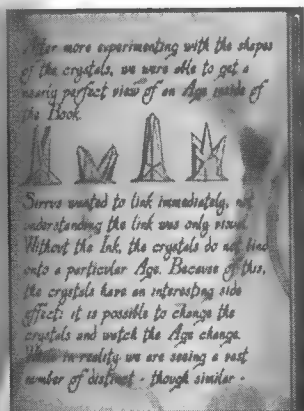 After more experimenting with the shapes
of the crystals, we were able to get a
nearly perfect view of an Age inside of
the Book.
Sirrus wanted to link immediately, not
understanding the link was only visual.
Without the Ink, the crystals do not link
onto a particular Age. Because of this,
the crystals have an interesting side
effect; it is possible to change the
crystals and watch the Age change.
While in reality we are seeing a vast
number of distinct - though similar -